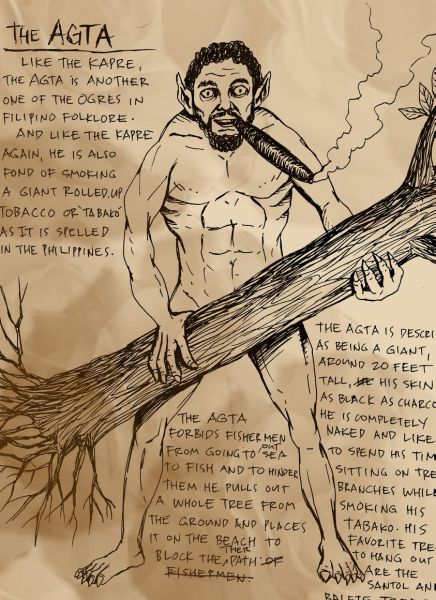 THE AGTA
LIKE THE KAPRE,
THE AGTA IS ANOTHER
ONE OF THE OGRES IN
FILIPINO FOLKLORE.
AND LIKE THE KAPRE
AGAIN, HE IS ALSO
FOND OF SMOKING
A GIANT ROLLED UP
TOBACCO OR 'TABAKO'
AS IT IS SPELLED
IN THE PHILIPPINES.
THE AGTA
FORBIDS FISHERMEN
FROM GOING TO OUT SEA
TO FISH AND TO HINDER
THEM HE PULLS OUT
A WHOLE TREE FROM
THE GROUND AND PLACES
IT ON THE BEACH TO
BLOCK THE THEIR PATH. OF
FISHERMEN.
THE AGTA IS DESCRI
AS BEING A GIANT,
AROUND 20 FEET
TALL, HIS SKIN
AS BLACK AS CHARCO
HE IS COMPLETELY
NAKED AND LIKE
TO SPEND HIS TIM
SITTING ON TRE
BRANCHES WHILE
SMOKING HIS
TABAKO. HIS
FAVORITE TREE
TO HANG OUT
ARE THE
SANTOL AN
BALETE TREE